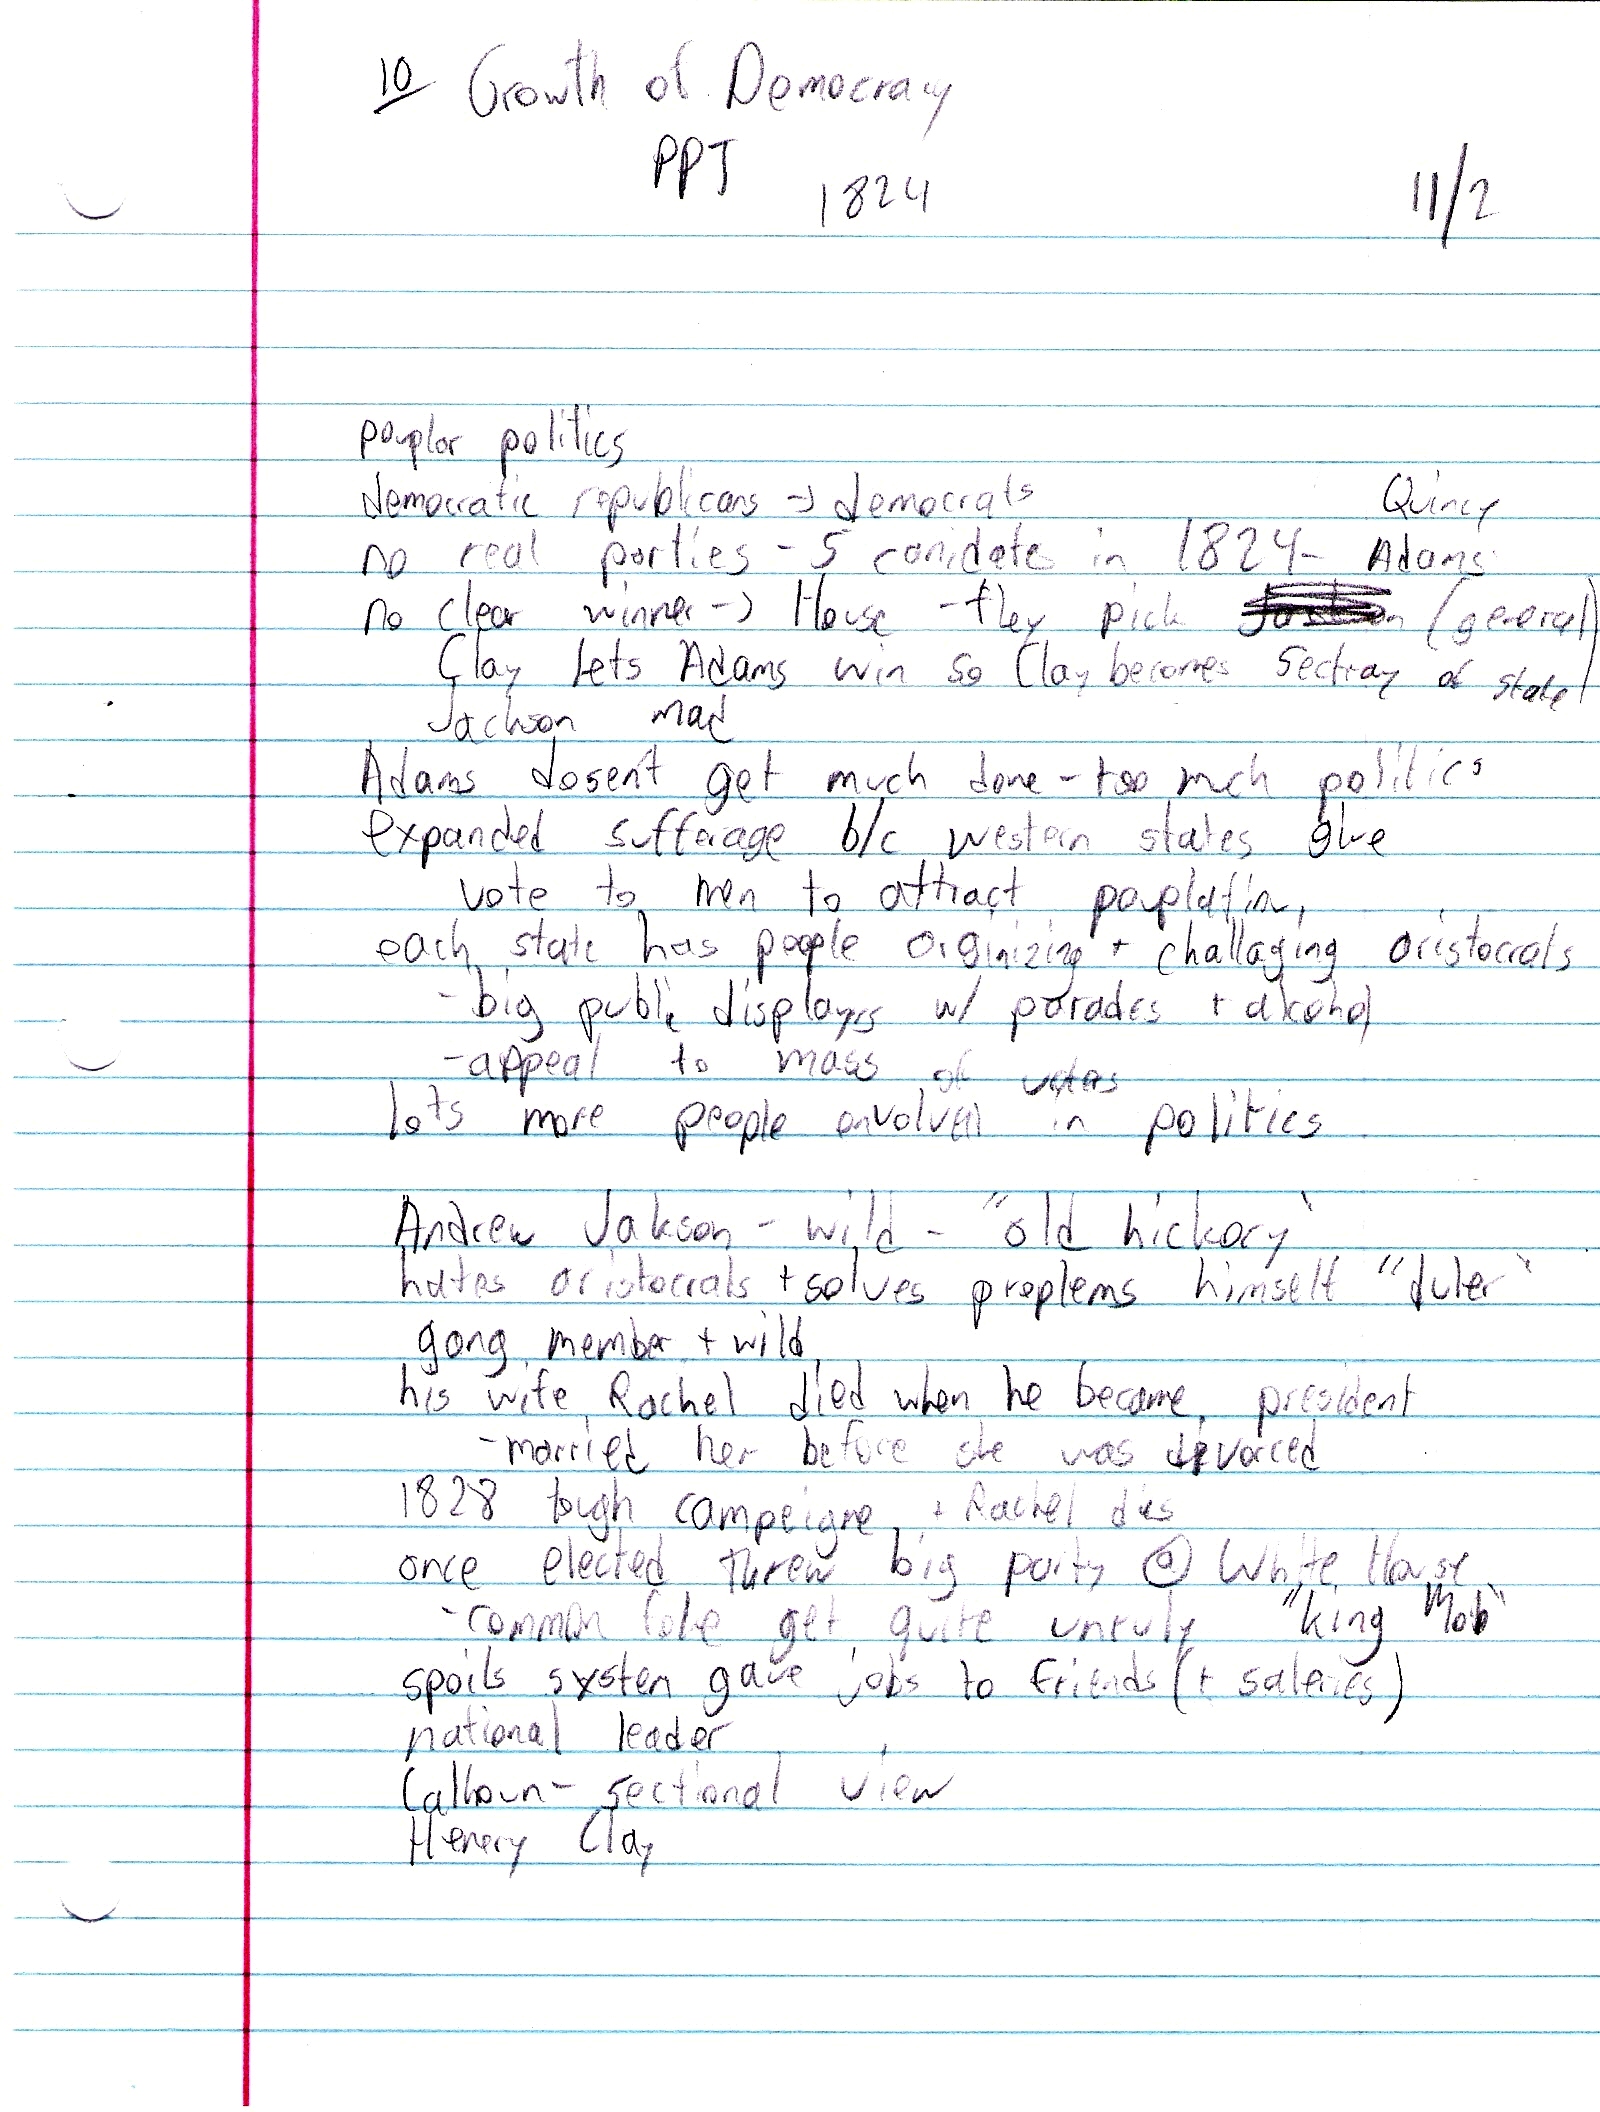 10 Growth of Democracy
PPT
1824
11/2
pouplar politics
democratic republicans → democrats
Quincy
no real parties - 5 canidate in 1824- Adams
no clear winner → House - they pick (general)
Clay lets Adams win so Clay becomes Sectray of state
Jackson mad
Adams dosen't get much done - too much politics
expanded sufferage b/c western states give
vote to men to attract pouplatin,
each state has people orginizing + challaging aristocrats
- big public displays w/ parades + alcohol
- appeal to mass of votes
lots more people envolved in politics
Andrew Jakson - wild - "old hickory"
hates aristocrats + solves preplems himself "duler"
gang member + wild
his wife Rachel died when he became president
- married her before she was divorced
1828 tough campeigne + Rachel dies
once elected threw big party @ White House
- common folke get quite unruly "king Mob"
spoils system gave jobs to friends (+ saleries)
national leader
Calhoun - sectional view
Henery Clay